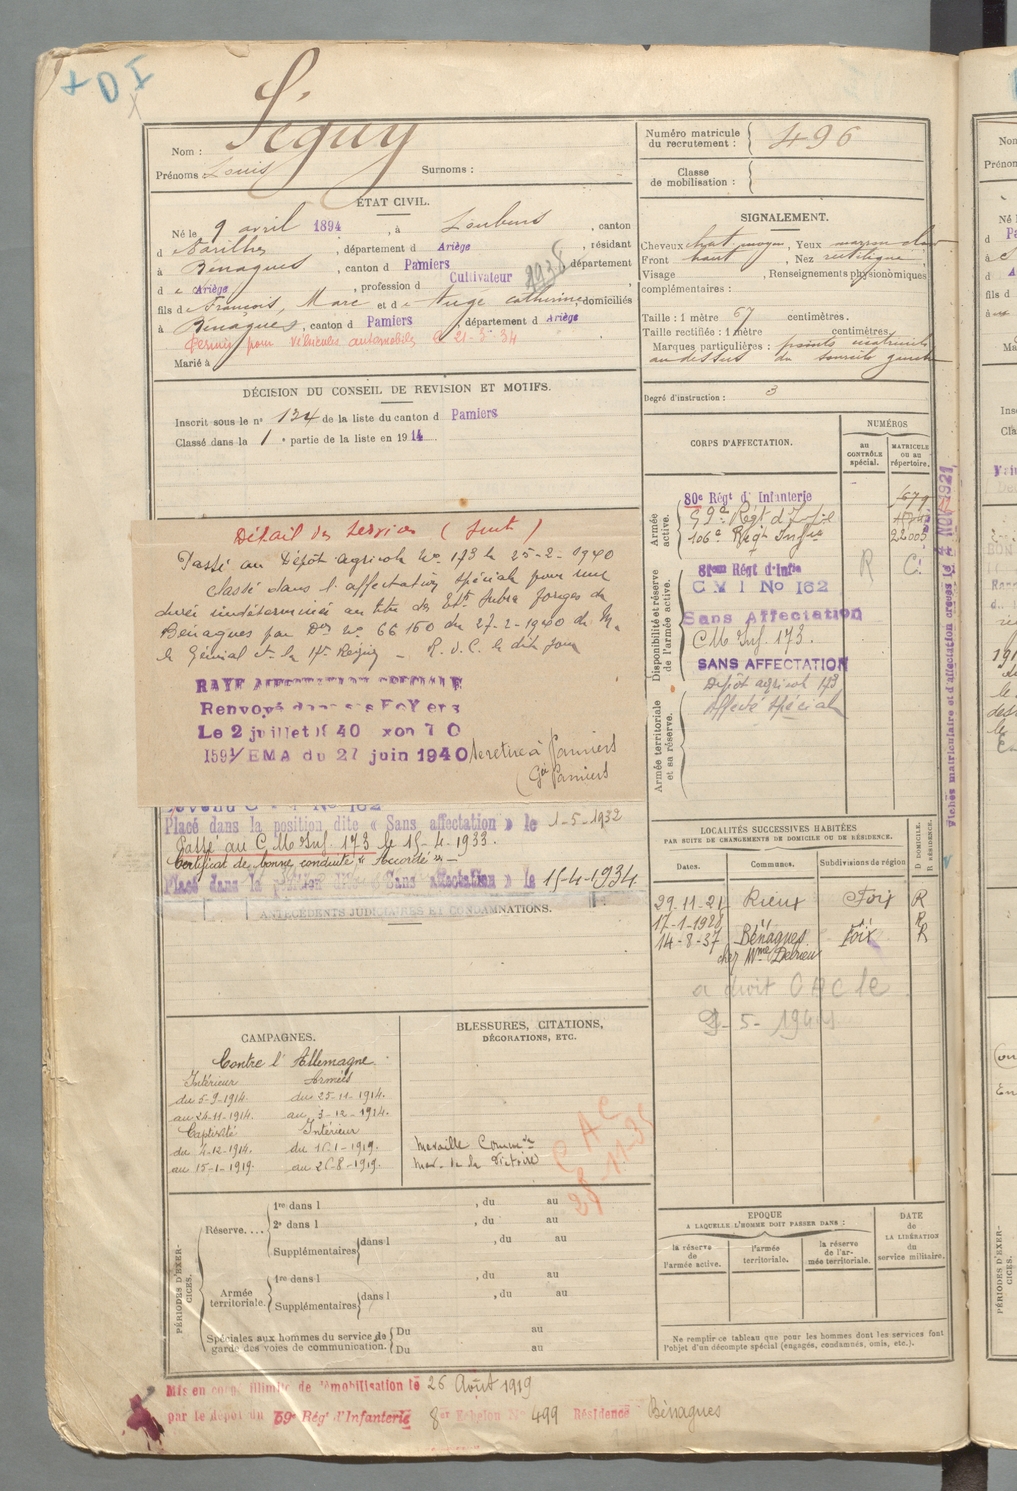 Séguy
Nom :
Prénoms : Louis Surnoms :
Numéro matricule du recrutement : 496
Classe de mobilisation :
ÉTAT CIVIL.
Né le 9 avril 1894, à Loubens, canton
d Varilhes, département d Ariège, résidant
à Bénagues, canton d Pamiers département
d e Ariège, profession d Cultivateur 1938
fils de François, Marc et de Auge Catherine, domiciliés
à Bénagues, canton d Pamiers, département d Ariège
Permis pour véhicules automobiles le 21-3-34
Marié à
SIGNALEMENT.
Cheveux chat. moyen, Yeux marron clair
Front haut, Nez rectiligne
Visage , Renseignements physionomiques
complémentaires :
Taille : 1 mètre 67 centimètres.
Taille rectifiée : 1 mètre centimètres.
Marques particulières :
au dessus du sourcil gauche
Degré d'instruction : 3
DÉCISION DU CONSEIL DE REVISION ET MOTIFS.
Inscrit sous le n° 134 de la liste du canton d Pamiers
Classé dans la 1 e partie de la liste en 1914.
CORPS D'AFFECTATION.
NUMÉROS
au CONTRÔLE spécial.
MATRICULE ou au répertoire.
Armée active.
80e Régt d'Infanterie
59e Régt d'Infie
106e Régt Infie 22005
Disponibilité et réserve de l'armée active.
81ème Régt d'Infie R C!
C M I No 162
Sans Affectation
C M Inf. 173.
SANS AFFECTATION
Armée territoriale et sa réserve.
Dépôt agricole 173
Affecté spécial
Détail des services (suite)
Passé au Dépôt agricole No 173 le 25-2-1940
Classé dans l'affectation spéciale pour une
durée indéterminée au titre des Etts Forges de
Bénagues par Don No 66160 du 27-2-1940 de M.
le Général Ct la 17e Région _ R.D.C. le dit jour
RAYE AFFECTATION SPECIALE
Renvoyé dans ses Foyers
Le 2 juillet 1940
1591/EMA du 27 juin 1940 se retire à Pamiers
(Gie Pamiers
Devenu C M I No 162
Placé dans la position dite « Sans affectation » le 1-5-1932
Passé au C.M. Inf. 173 le 15-4-1933.
Certificat de bonne conduite "Accordé" —
Placé dans la position dite « Sans affectation » le 15-4-1934
ANTÉCÉDENTS JUDICIAIRES ET CONDAMNATIONS.
Fichés matriculaire et d'affectation créées le 4 NOV 1921
LOCALITÉS SUCCESSIVES HABITÉES
PAR SUITE DE CHANGEMENTS DE DOMICILE OU DE RÉSIDENCE.
Dates. Communes. Subdivisions de région D DOMICILE. R RÉSIDENCE.
29-11-21 Rieux Foix R
17-1-1928 " " R
14-8-37 Bénagues Foix R
chez Mme Debrieu
a droit CAC le
CAMPAGNES.
Contre l'Allemagne.
Intérieur Armées
du 5-9-1914. du 25-11-1914.
au 24-11-1914. au 3-12-1914.
Captivité Intérieur
du 4-12-1914. du 16-1-1919.
au 15-1-1919. au 26-8-1919.
BLESSURES, CITATIONS,
DÉCORATIONS, ETC.
Médaille Commve
Méd. de la Victoire
CAC
28-11-35
PÉRIODES D'EXERCICES.
Réserve....
1re dans l , du au
2e dans l , du au
Supplémentaires dans l , du au
Armée territoriale.
1re dans l , du au
Supplémentaires dans l , du au
Spéciales aux hommes du service de garde des voies de communication.
Du au
Du au
EPOQUE
A LAQUELLE L'HOMME DOIT PASSER DANS :
la réserve de l'armée active.
l'armée territoriale.
la réserve de l'armée territoriale.
DATE de LA LIBÉRATION du service militaire.
Ne remplir ce tableau que pour les hommes dont les services font
l'objet d'un décompte spécial (engagés, condamnés, omis, etc.).
Mis en congé illimité de démobilisation le 26 Août 1919
par le dépôt du 59e Régt d'Infanterie 8e Echelon No 499 Résidence Bénagues